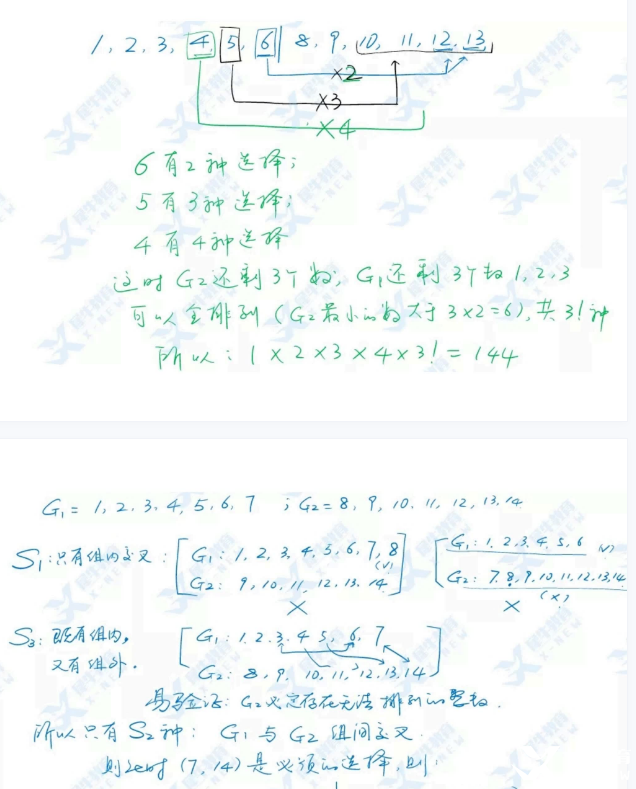 1, 2, 3, 4, 5, 6 | 8, 9, 10, 11, 12, 13
×2
×3
×4
6有2种选择;
5有3种选择;
4有4种选择
这时G2还剩3个数, G1还剩3个数1,2,3
可以全排列(G2最小的数大于3×2=6),共3!种
所以: 1×2×3×4×3! = 144
G1 = 1, 2, 3, 4, 5, 6, 7 ; G2 = 8, 9, 10, 11, 12, 13, 14
S1:只有组内交叉: G1: 1, 2, 3, 4, 5, 6, 7, 8 (√) G1: 1, 2, 3, 4, 5, 6 (√)
G2: 9, 10, 11, 12, 13, 14 G2: 7, 8, 9, 10, 11, 12, 13, 14
× × (×)
S2: 既有组内, G1: 1, 2, 3, 4, 5, 6, 7
又有组外. G2: 8, 9, 10, 11, 12, 13, 14
易验证: G2必定存在无法排列的整数.
所以只有S2种: G1与G2组间交叉.
则此时(7, 14)是必须的选择,则: